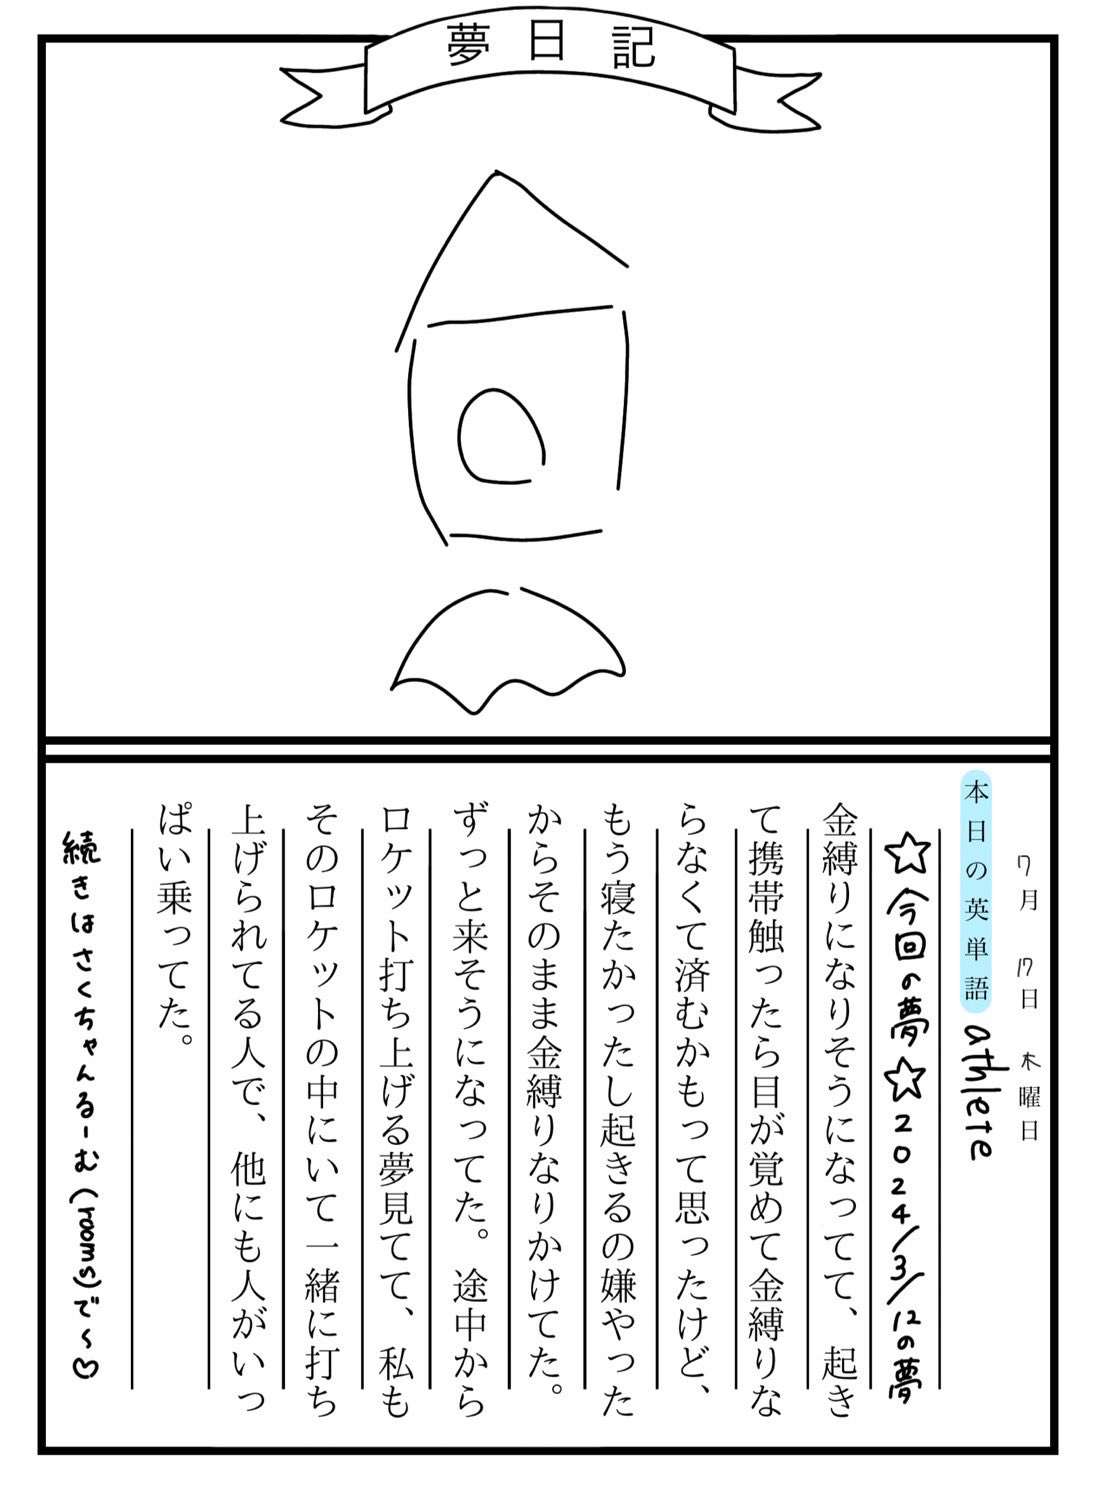 夢日記
7月 17日 木曜日
本日の英単語 athlete
☆今回の夢☆2024/3/12の夢
金縛りになりそうになってて、起き
て携帯触ったら目が覚めて金縛りな
らなくて済むかもって思ったけど、
もう寝たかったし起きるの嫌やった
からそのまま金縛りなりかけてた。
ずっと来そうになってた。途中から
ロケット打ち上げる夢見てて、私も
そのロケットの中にいて一緒に打ち
上げられてる人で、他にも人がいっ
ぱい乗ってた。
続きはさくちゃんるーむ(rooms)で〜♡